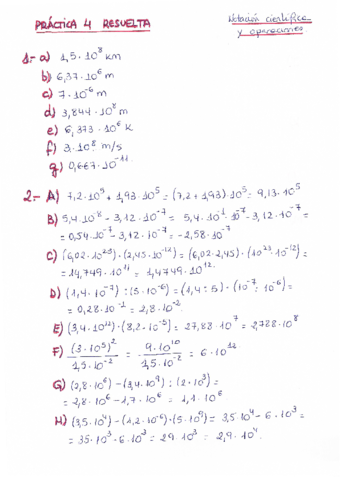 PRÁCTICA 4 RESUELTA
Notación científica y operaciones
1.- a) 1,5·10⁸ km
b) 6,37·10⁶ m
c) 7·10⁻⁶ m
d) 3,844·10⁸ m
e) 6,373·10⁶ K
f) 3·10⁸ m/s
g) 0,667·10⁻¹¹
2.- A) 7,2·10⁵ + 1,93·10⁵ = (7,2 + 1,93)·10⁵ = 9,13·10⁵
B) 5,4·10⁻⁸ - 3,12·10⁻⁷ = 5,4·10⁻¹·10⁻⁷ - 3,12·10⁻⁷ =
= 0,54·10⁻⁷ - 3,12·10⁻⁷ = -2,58·10⁻⁷
C) (6,02·10²³)·(2,45·10⁻¹²) = (6,02·2,45)·(10²³·10⁻¹²) =
= 14,749·10¹¹ = 1,4749·10¹².
D) (1,4·10⁻⁷) : (5·10⁻⁶) = (1,4 : 5)·(10⁻⁷ : 10⁻⁶) =
= 0,28·10⁻¹ = 2,8·10⁻².
E) (3,4·10¹²)·(8,2·10⁻⁵) = 27,88·10⁷ = 2,788·10⁸
F) (3·10⁵)² / 1,5·10⁻² = 9·10¹⁰ / 1,5·10⁻² = 6·10¹²
G) (2,8·10⁶) - (3,4·10⁹) : (2·10³) =
= 2,8·10⁶ - 1,7·10⁶ = 1,1·10⁶
H) (3,5·10⁴) - (1,2·10⁻⁶)·(5·10⁹) = 3,5·10⁴ - 6·10³ =
= 35·10³ - 6·10³ = 29·10³ = 2,9·10⁴.